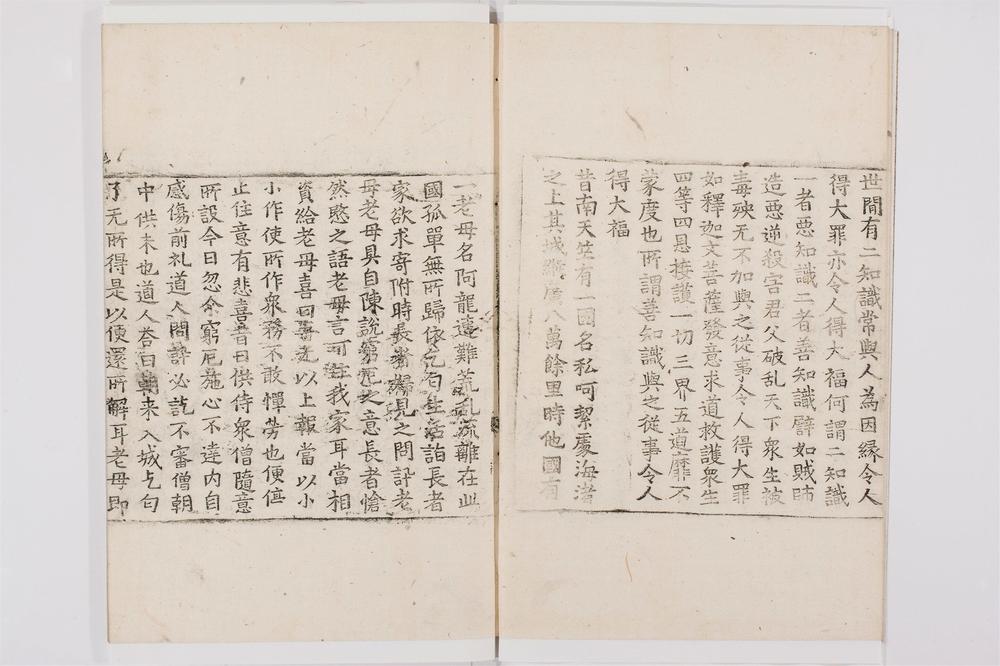 世間有二知識常與人為因緣令人
得大罪亦令人得大福何謂二知識
一者惡知識二者善知識譬如賊師
造惡逆殺害君父破乱天下衆生被
毒殃无不加與之從事令人得大罪
如釋迦文菩薩發意求道救護衆生
四等四恩接護一切三界五道靡不
蒙度也所謂善知識與之從事令人
得大福
昔南天竺有一國名私呵絜處海渚
之上其城縱廣八萬餘里時他國有
一老母名阿龍遭難荒乱流離在此
國孤單無所歸依乞匂生活詣長者
家欲求寄附時長者婦見之問訊老
母老母具自陳說窮厄之意長者愴
然愍之語老母言可住我家耳當相
資給老母喜曰 以上報當以小
小作使所作衆務不敢憚勞也便停
止住意有悲喜昔日供侍衆僧隨意
所設今日忽尒窮厄施心不達内自
感傷前礼道人問訊必訖不審僧朝
中供未也道人荅曰朝来入城乞匂
了无所得是以便還所解耳老母即